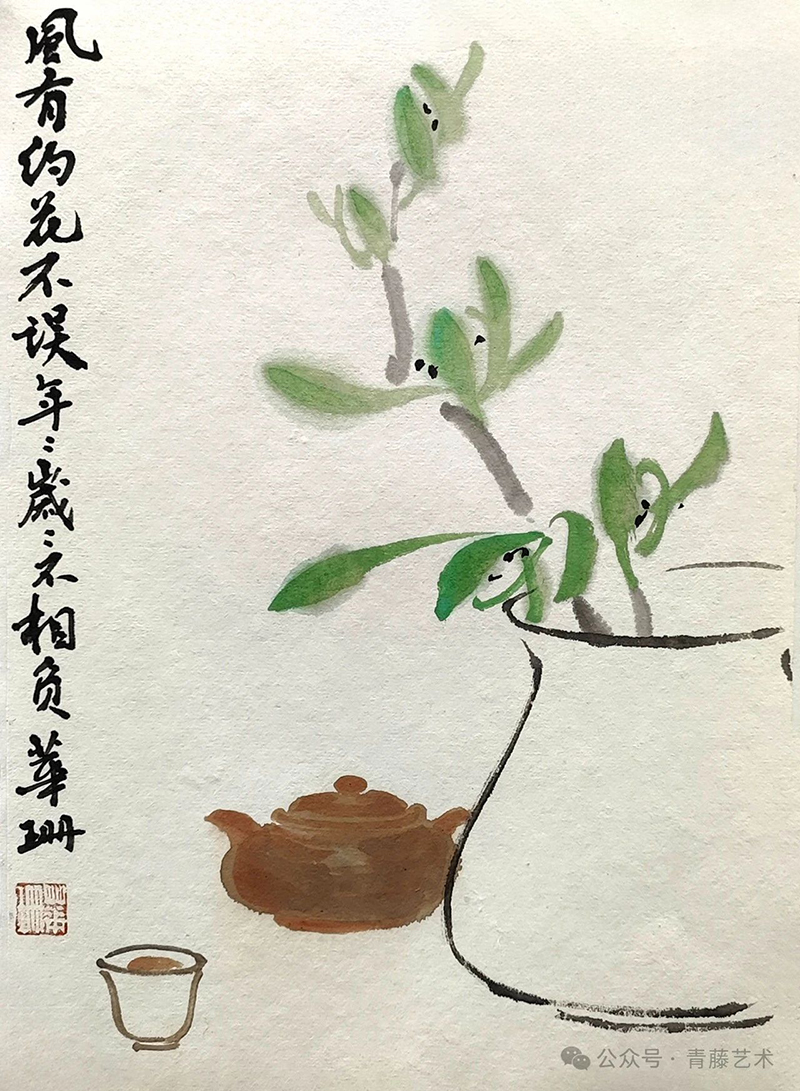 風有约花不误年〻歲〻不相负 華珊
華珊
公众号 · 青藤艺术